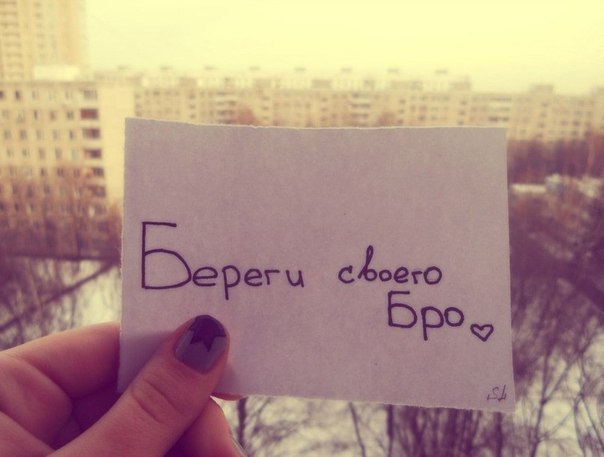 Береги своего
Бро